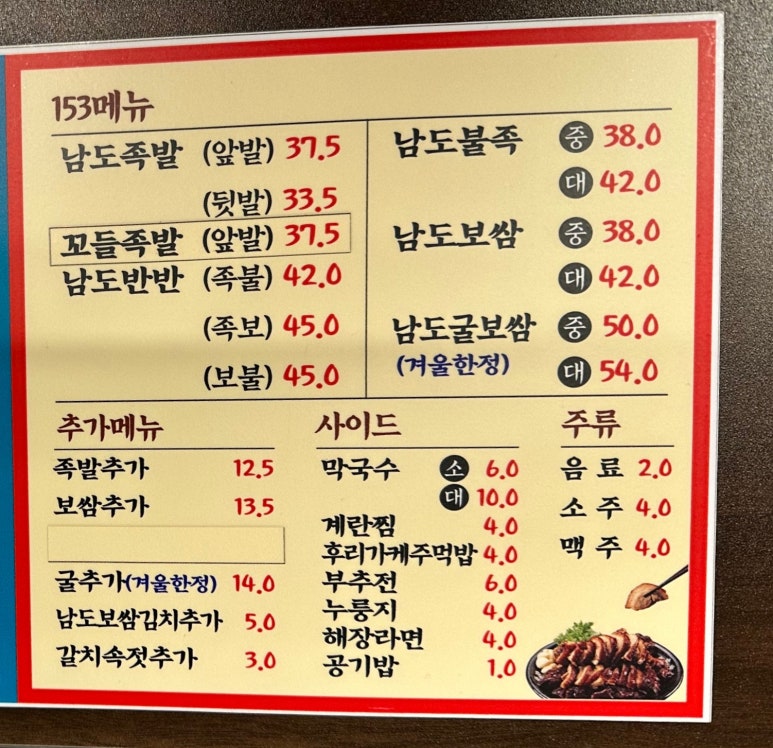 153메뉴
남도족발 (앞발) 37.5
(뒷발) 33.5
꼬들족발 (앞발) 37.5
남도반반 (족불) 42.0
(족보) 45.0
(보불) 45.0
남도불족 중 38.0
대 42.0
남도보쌈 중 38.0
대 42.0
남도굴보쌈 중 50.0
(겨울한정) 대 54.0
추가메뉴
족발추가 12.5
보쌈추가 13.5
굴추가(겨울한정) 14.0
남도보쌈김치추가 5.0
갈치속젓추가 3.0
사이드
막국수 소 6.0
대 10.0
계란찜 4.0
후리가케주먹밥 4.0
부추전 6.0
누룽지 4.0
해장라면 4.0
공기밥 1.0
주류
음료 2.0
소주 4.0
맥주 4.0